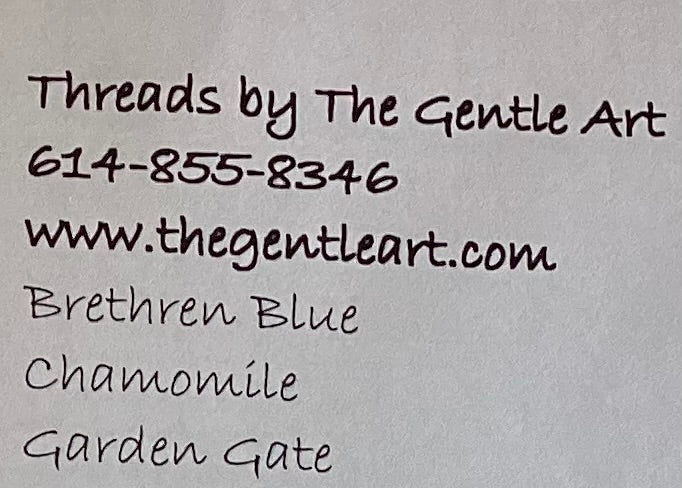 Threads by The Gentle Art
614-855-8346
www.thegentleart.com
Brethren Blue
Chamomile
Garden Gate